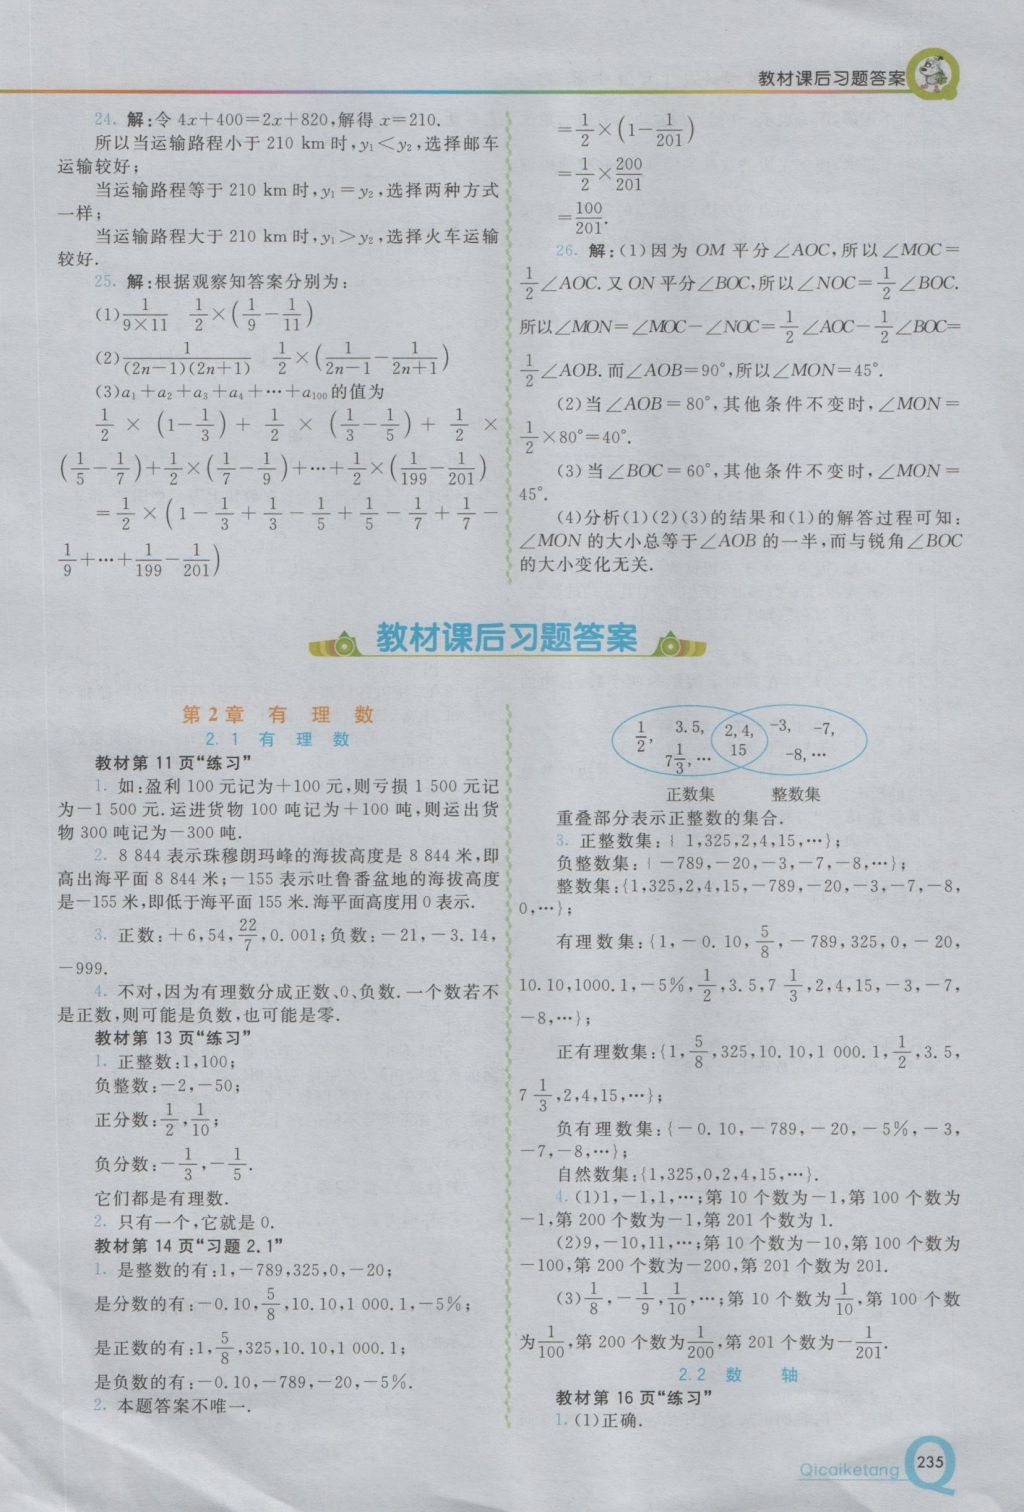 教材课后习题答案
24. 解:令 4x+400=2x+820,解得 x=210.
所以当运输路程小于 210 km 时,y₁<y₂,选择邮车
运输较好;
当运输路程等于 210 km 时,y₁=y₂,选择两种方式
一样;
当运输路程大于 210 km 时,y₁>y₂,选择火车运输
较好.
25. 解:根据观察知答案分别为:
(1) 1/(9×11)  1/2×(1/9-1/11)
(2) 1/((2n-1)(2n+1))  1/2×(1/(2n-1)-1/(2n+1))
(3)a₁+a₂+a₃+a₄+…+a₁₀₀的值为
1/2×(1-1/3)+1/2×(1/3-1/5)+1/2×
(1/5-1/7)+1/2×(1/7-1/9)+…+1/2×(1/199-1/201)
=1/2×(1-1/3+1/3-1/5+1/5-1/7+1/7-
1/9+…+1/199-1/201)
=1/2×(1-1/201)
=1/2×200/201
=100/201.
26. 解:(1)因为 OM 平分∠AOC,所以∠MOC=
1/2∠AOC.又 ON 平分∠BOC,所以∠NOC=1/2∠BOC.
所以∠MON=∠MOC-∠NOC=1/2∠AOC-1/2∠BOC=
1/2∠AOB.而∠AOB=90°,所以∠MON=45°.
(2)当∠AOB=80°,其他条件不变时,∠MON=
1/2×80°=40°.
(3)当∠BOC=60°,其他条件不变时,∠MON=
45°.
(4)分析(1)(2)(3)的结果和(1)的解答过程可知:
∠MON 的大小总等于∠AOB 的一半,而与锐角∠BOC
的大小变化无关.
教材课后习题答案
第 2 章 有 理 数
2.1 有 理 数
教材第 11 页“练习”
1. 如:盈利 100 元记为+100 元,则亏损 1 500 元记
为-1 500 元.运进货物 100 吨记为+100 吨,则运出货
物 300 吨记为-300 吨.
2. 8 844 表示珠穆朗玛峰的海拔高度是 8 844 米,即
高出海平面 8 844 米;-155 表示吐鲁番盆地的海拔高度
是-155 米,即低于海平面 155 米.海平面高度用 0 表示.
3. 正数:+6,54,22/7,0.001;负数:-21,-3.14,
-999.
4. 不对,因为有理数分成正数、0、负数.一个数若不
是正数,则可能是负数,也可能是零.
教材第 13 页“练习”
1. 正整数:1,100;
负整数:-2,-50;
正分数:1/2,1/10;
负分数:-1/3,-1/5.
它们都是有理数.
2. 只有一个,它就是 0.
教材第 14 页“习题 2.1”
1. 是整数的有:1,-789,325,0,-20;
是分数的有:-0.10,5/8,10.10,1 000.1,-5%;
是正数的有:1,5/8,325,10.10,1 000.1;
是负数的有:-0.10,-789,-20,-5%.
2. 本题答案不唯一.
1/2, 3.5, 7 1/3,… 2,4, 15 -3, -7, -8,…
正数集 整数集
重叠部分表示正整数的集合.
3. 正整数集:{ 1,325,2,4,15,…};
负整数集:{ -789,-20,-3,-7,-8,…};
整数集:{1,325,2,4,15,-789,-20,-3,-7,-8,
0,…};
有理数集:{1,-0.10,5/8,-789,325,0,-20,
10.10,1000.1,-5%,1/2,3.5,7 1/3,2,4,15,-3,-7,
-8,…};
正有理数集:{1,5/8,325,10.10,1 000.1,1/2,3.5,
7 1/3,2,4,15,…};
负有理数集:{-0.10,-789,-20,-5%,-3,
-7,-8,…};
自然数集:{1,325,0,2,4,15,…}.
4. (1)1,-1,1,…;第 10 个数为-1,第 100 个数为
-1,第 200 个数为-1,第 201 个数为 1.
(2)9,-10,11,…;第 10 个数为-10,第 100 个数为
-100,第 200 个数为-200,第 201 个数为 201.
(3)1/8,-1/9,1/10,…;第 10 个数为1/10,第 100 个数
为1/100,第 200 个数为1/200,第 201 个数为-1/201.
2.2 数 轴
教材第 16 页“练习”
1. (1)正确.
Qicaiketang
235